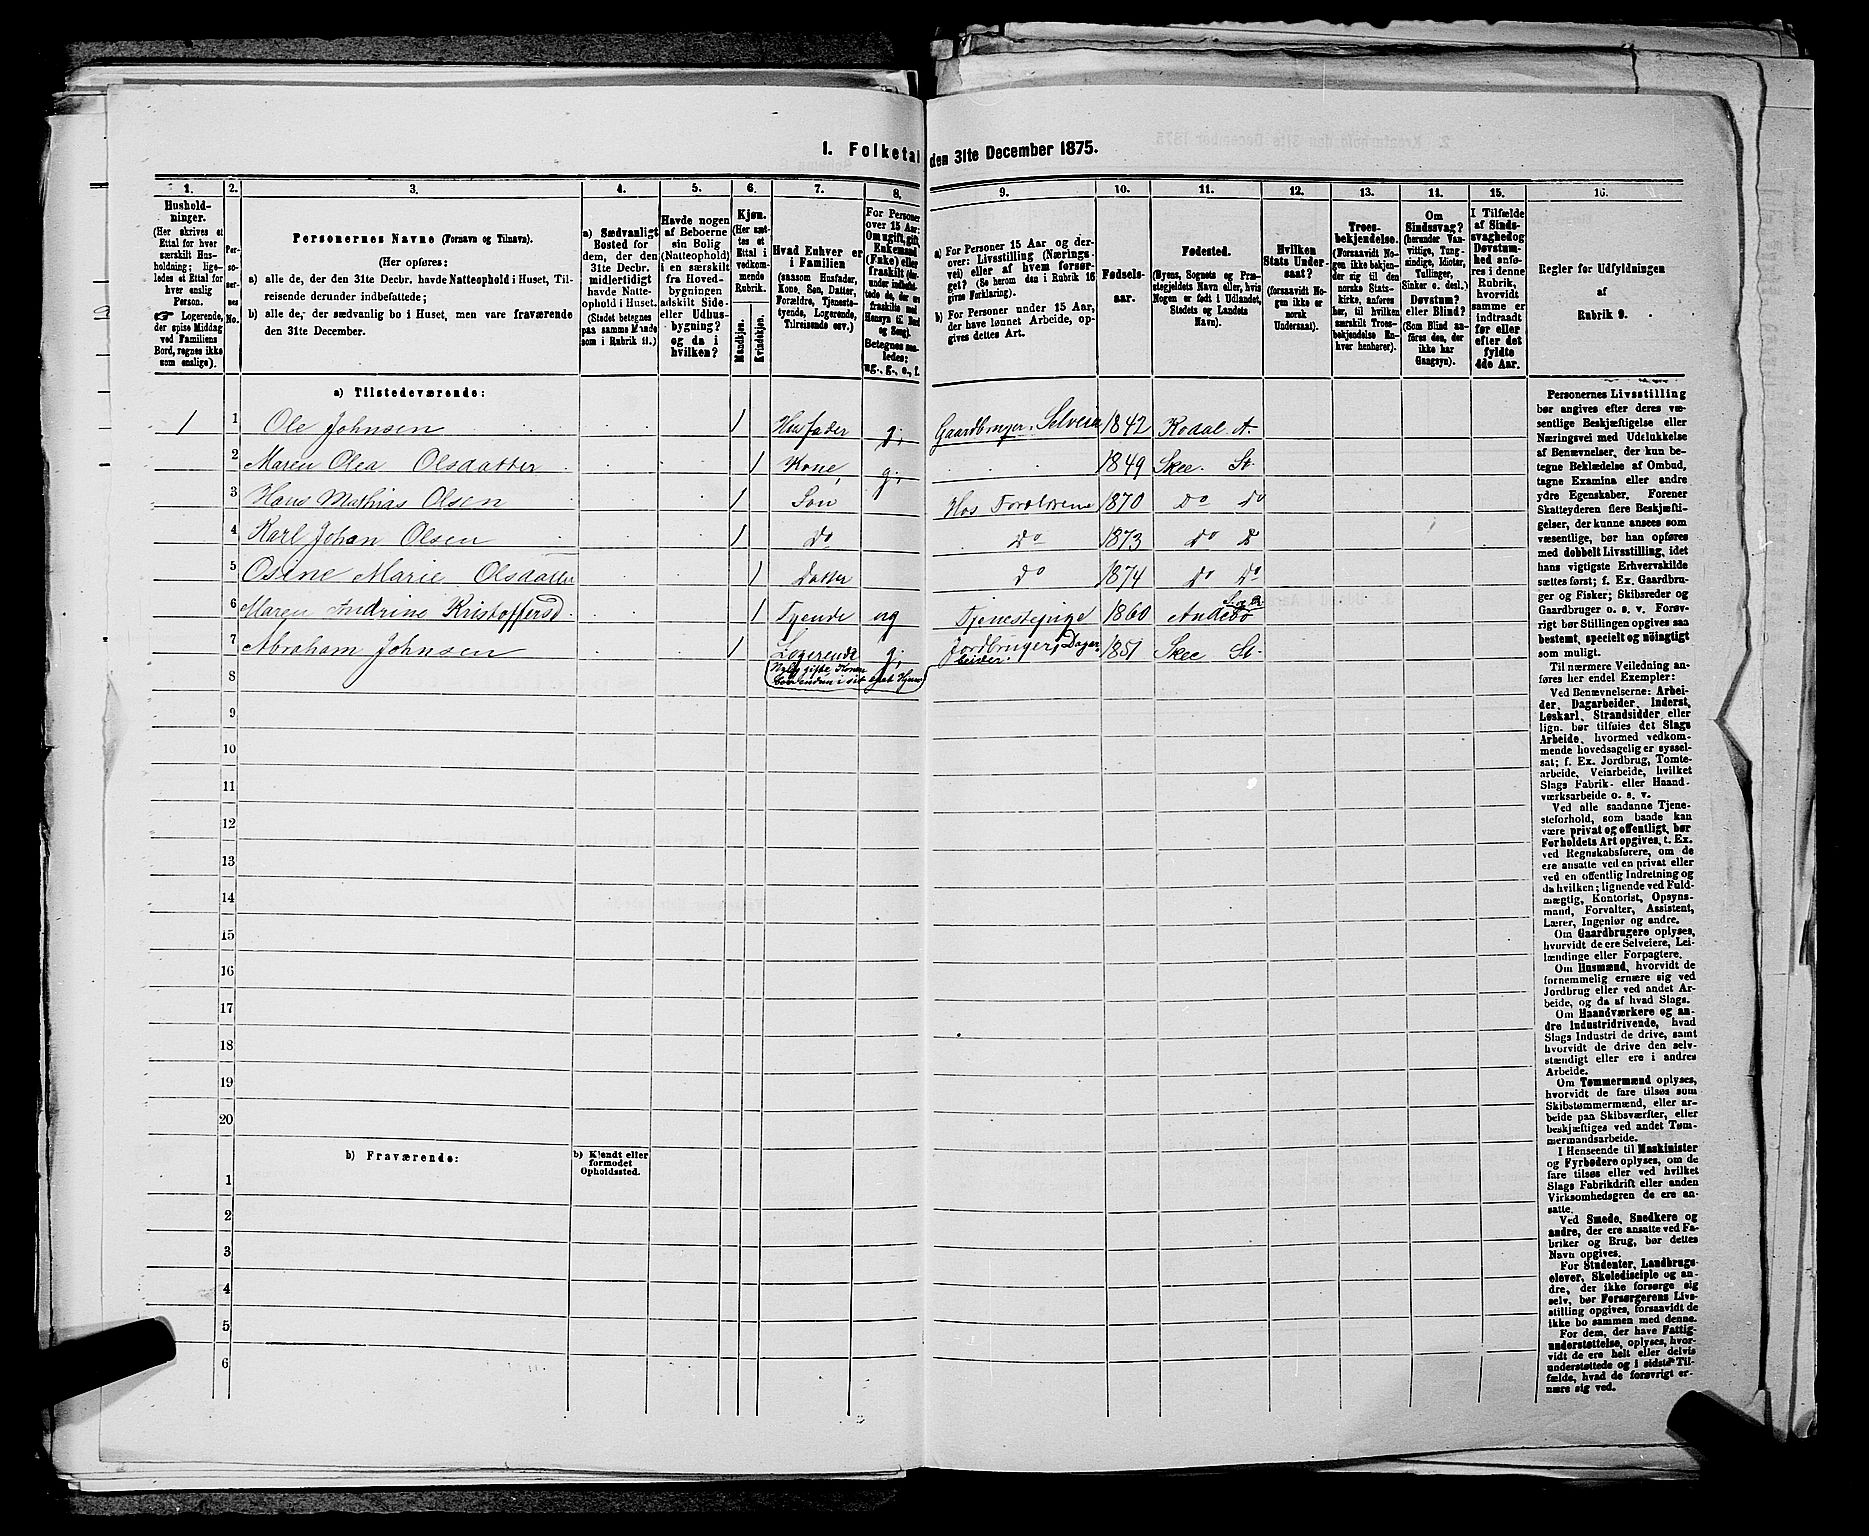 1. Folketal den 31te December 1875.
1. 2. 3. 4. 5. 6. 7. 8. 9. 10. 11. 12. 13. 14. 15. 16.
Hushold-
ninger.
(Her skrives et
Ettal for hver
særskilt Hus-
holdning; lige-
ledes et Ettal for
hver enslig
Person.
☞ Logerende,
der spise Middag
ved Familiens
Bord, regnes ikke
som enslige).
Per-
so-
ner-
nes
No.
Personernes Navne (Fornavn og Tilnavn).
(Her opføres:
a) alle de, der den 31te Decbr. havde Natteophold i Huset, Til-
reisende derunder indbefattede;
b) alle de, der sædvanlig bo i Huset, men vare fraværende
den 31te December.
a) Sædvanligt
Bosted for
dem, der den
31te Decbr.
midlertidigt
havde Natte-
ophold i Huset.
(Stedet betegnes
paa samme Maade
som i Rubrik 11.)
Havde nogen
af Beboerne
sin Bolig
(Natteophold)
i en særskilt
fra Hoved-
bygningen
adskilt Side-
eller Udhus-
bygning?
og da i
hvilken?
Kjøn.
(Her sæt-
tes et
Ettal i
vedkom-
mende
Rubrik.
Mandkjøn.
Kvindekjøn.
Hvad Enhver er
i Familien
(saasom Husfader,
Kone, Søn, Datter,
Forældre, Tjeneste-
tyende, Logerende,
Tilreisende osv.)
For Personer
over 15 Aar:
Om ugift, gift,
Enkemand
(Enke) eller
fraskilt
Betegnes saa-
ledes:
ug., g., e., f.
a) For Personer 15 Aar og der-
over: Livsstilling (Nærings-
vei) eller af hvem forsør-
get? (Se herom den i Rubrik 16
givne Forklaring).
b) For Personer under 15 Aar,
der have lønnet Arbeide, op-
gives dettes Art.
Fødsels-
aar.
Fødested.
(Byens, Sognets og Præ-
stegjeldets Navn eller, hvis
Nogen er født i Udlandet,
Stedets og Landets
Navn).
Hvilken
Stats Under-
saat?
(forsaavidt No-
gen ikke er
norsk
Undersaat).
Troes-
bekjendelse.
(Forsaavidt No-
gen ikke bekjen-
der sig til den
norske Stats-
kirke, anføres
her, til hvilken
særskilt Troes-
bekjendelse En-
hver henhører).
Om
Sindssvag?
(herunder Van-
vittige, Tung-
sindige, Idioter,
Tullinger,
Sinker o. desl.)
Døvstum?
eller Blind?
(Som Blind an-
føres den, der
ikke har
Gangsyn).
I Tilfælde
af Sinds-
svaghed og
Døvstum-
hed anfø-
res i denne
Rubrik,
hvorvidt
samme er
indtraadt
før eller
efter det
fyldte
4de Aar.
Regler for Udfyldningen
af
Rubrik 9.
a) Tilstedeværende:
1 1 Ole Johnsen 1 Husfader g. Gaardbruger, Selveier 1842 Kodal A.
2 Maren Olea Olsdatter 1 Kone g. 1849 Skee St.
3 Hans Mathias Olsen 1 Søn Hos Forældrene 1870 Do Do
4 Karl Johan Olsen 1 Do Do 1873 Do D
5 Osine Marie Olsdatter 1 Datter Do 1874 Do Do
6 Maren Andrine Kristoffersd. 1 Tyende ug Tjenestepige 1860 Andebo
7 Abraham Johnsen 1 Logerende g. Jordbruger, Dagar-
beider. 1851 Skee St.
8
9
10
11
12
13
14
15
16
17
18
19
20
b) Fraværende:
b) Kjendt eller
formodet
Opholdssted.
1
2
3
4
5
6
Personernes Livsstilling
bør angives efter deres væ-
sentlige Beskjæftigelse eller
Næringsvei med Udelukkelse
af Benævnelser, der kun be-
tegne Beklædelse af Ombud,
tagne Examina eller andre
ydre Egenskaber. Forener
Skatteyderen flere Beskjæfti-
gelser, der kunne ansees som
væsentlige, bør han opføres
med dobbelt Livsstilling, idet
hans vigtigste Erhvervskilde
sættes først; f. Ex. Gaardbru-
ger og Fisker; Skibsreder og
Gaardbruger o. s. v. Forøv-
rigt bør Stillingen opgives saa
bestemt, specielt og nøiagtigt
som muligt.
Til nærmere Veiledning an-
føres her endel Exempler:
Ved Benævnelserne: Arbei-
der, Dagarbeider, Inderst,
Løskarl, Strandsidder eller
lign. bør tilføies det Slags
Arbeide, hvormed vedkom-
mende hovedsagelig er syssel-
sat; f. Ex. Jordbrug, Tomte-
arbeide, Veiarbeide, hvilket
Slags Fabrik- eller Haand-
værksarbeide o. s. v.
Ved alle saadanne Tjene-
steforhold, som baade kan
være privat og offentligt, bør
Forholdets Art opgives, t. Ex.
ved Regnskabsførere, om de
ere ansatte ved en privat eller
ved en offentlig Indretning og
da hvilken; lignende ved Fuld-
mægtig, Kontorist, Opsyns-
mand, Forvalter, Assistent,
Lærer, Ingeniør og andre.
Om Gaardbrugere oplyses,
hvorvidt de ere Selveiere, Lei-
lændinge eller Forpagtere.
Om Husmænd, hvorvidt de
fornemmelig ernære sig ved
Jordbrug eller ved andet Ar-
beide, og da af hvad Slags.
Om Haandværkere og an-
dre Industridrivende, hvad
Slags Industri de drive, samt
hvorvidt de drive den selv-
stændigt eller ere i andres
Arbeide.
Om Tømmermænd oplyses,
hvorvidt de fare tilsøs som
Skibstømmermænd, eller ar-
beide paa Skibsværfter, eller
beskjæftiges ved andet Tøm-
mermandsarbeide.
I Henseende til Maskinister
og Fyrbødere oplyses, om de
fare tilsøs eller ved hvilket
Slags Fabrikdrift eller anden
Virksomhedsgren de ere an-
satte.
Ved Smede, Snedkere og
andre, der ere ansatte ved Fa-
briker og Brug, bør dettes
Navn opgives.
For Studenter, Landbrugs-
elever, Skoledisciple og an-
dre, der ikke forsørge sig
selv, bør Forsørgerens Livs-
stilling opgives, forsaavidt de
ikke bo sammen med denne.
For dem, der have Fattig-
understøttelse, oplyses, hvor-
vidt de ere helt eller delvis
understøttede og i sidste Til-
fælde, hvad de forøvrigt er-
nære sig ved.